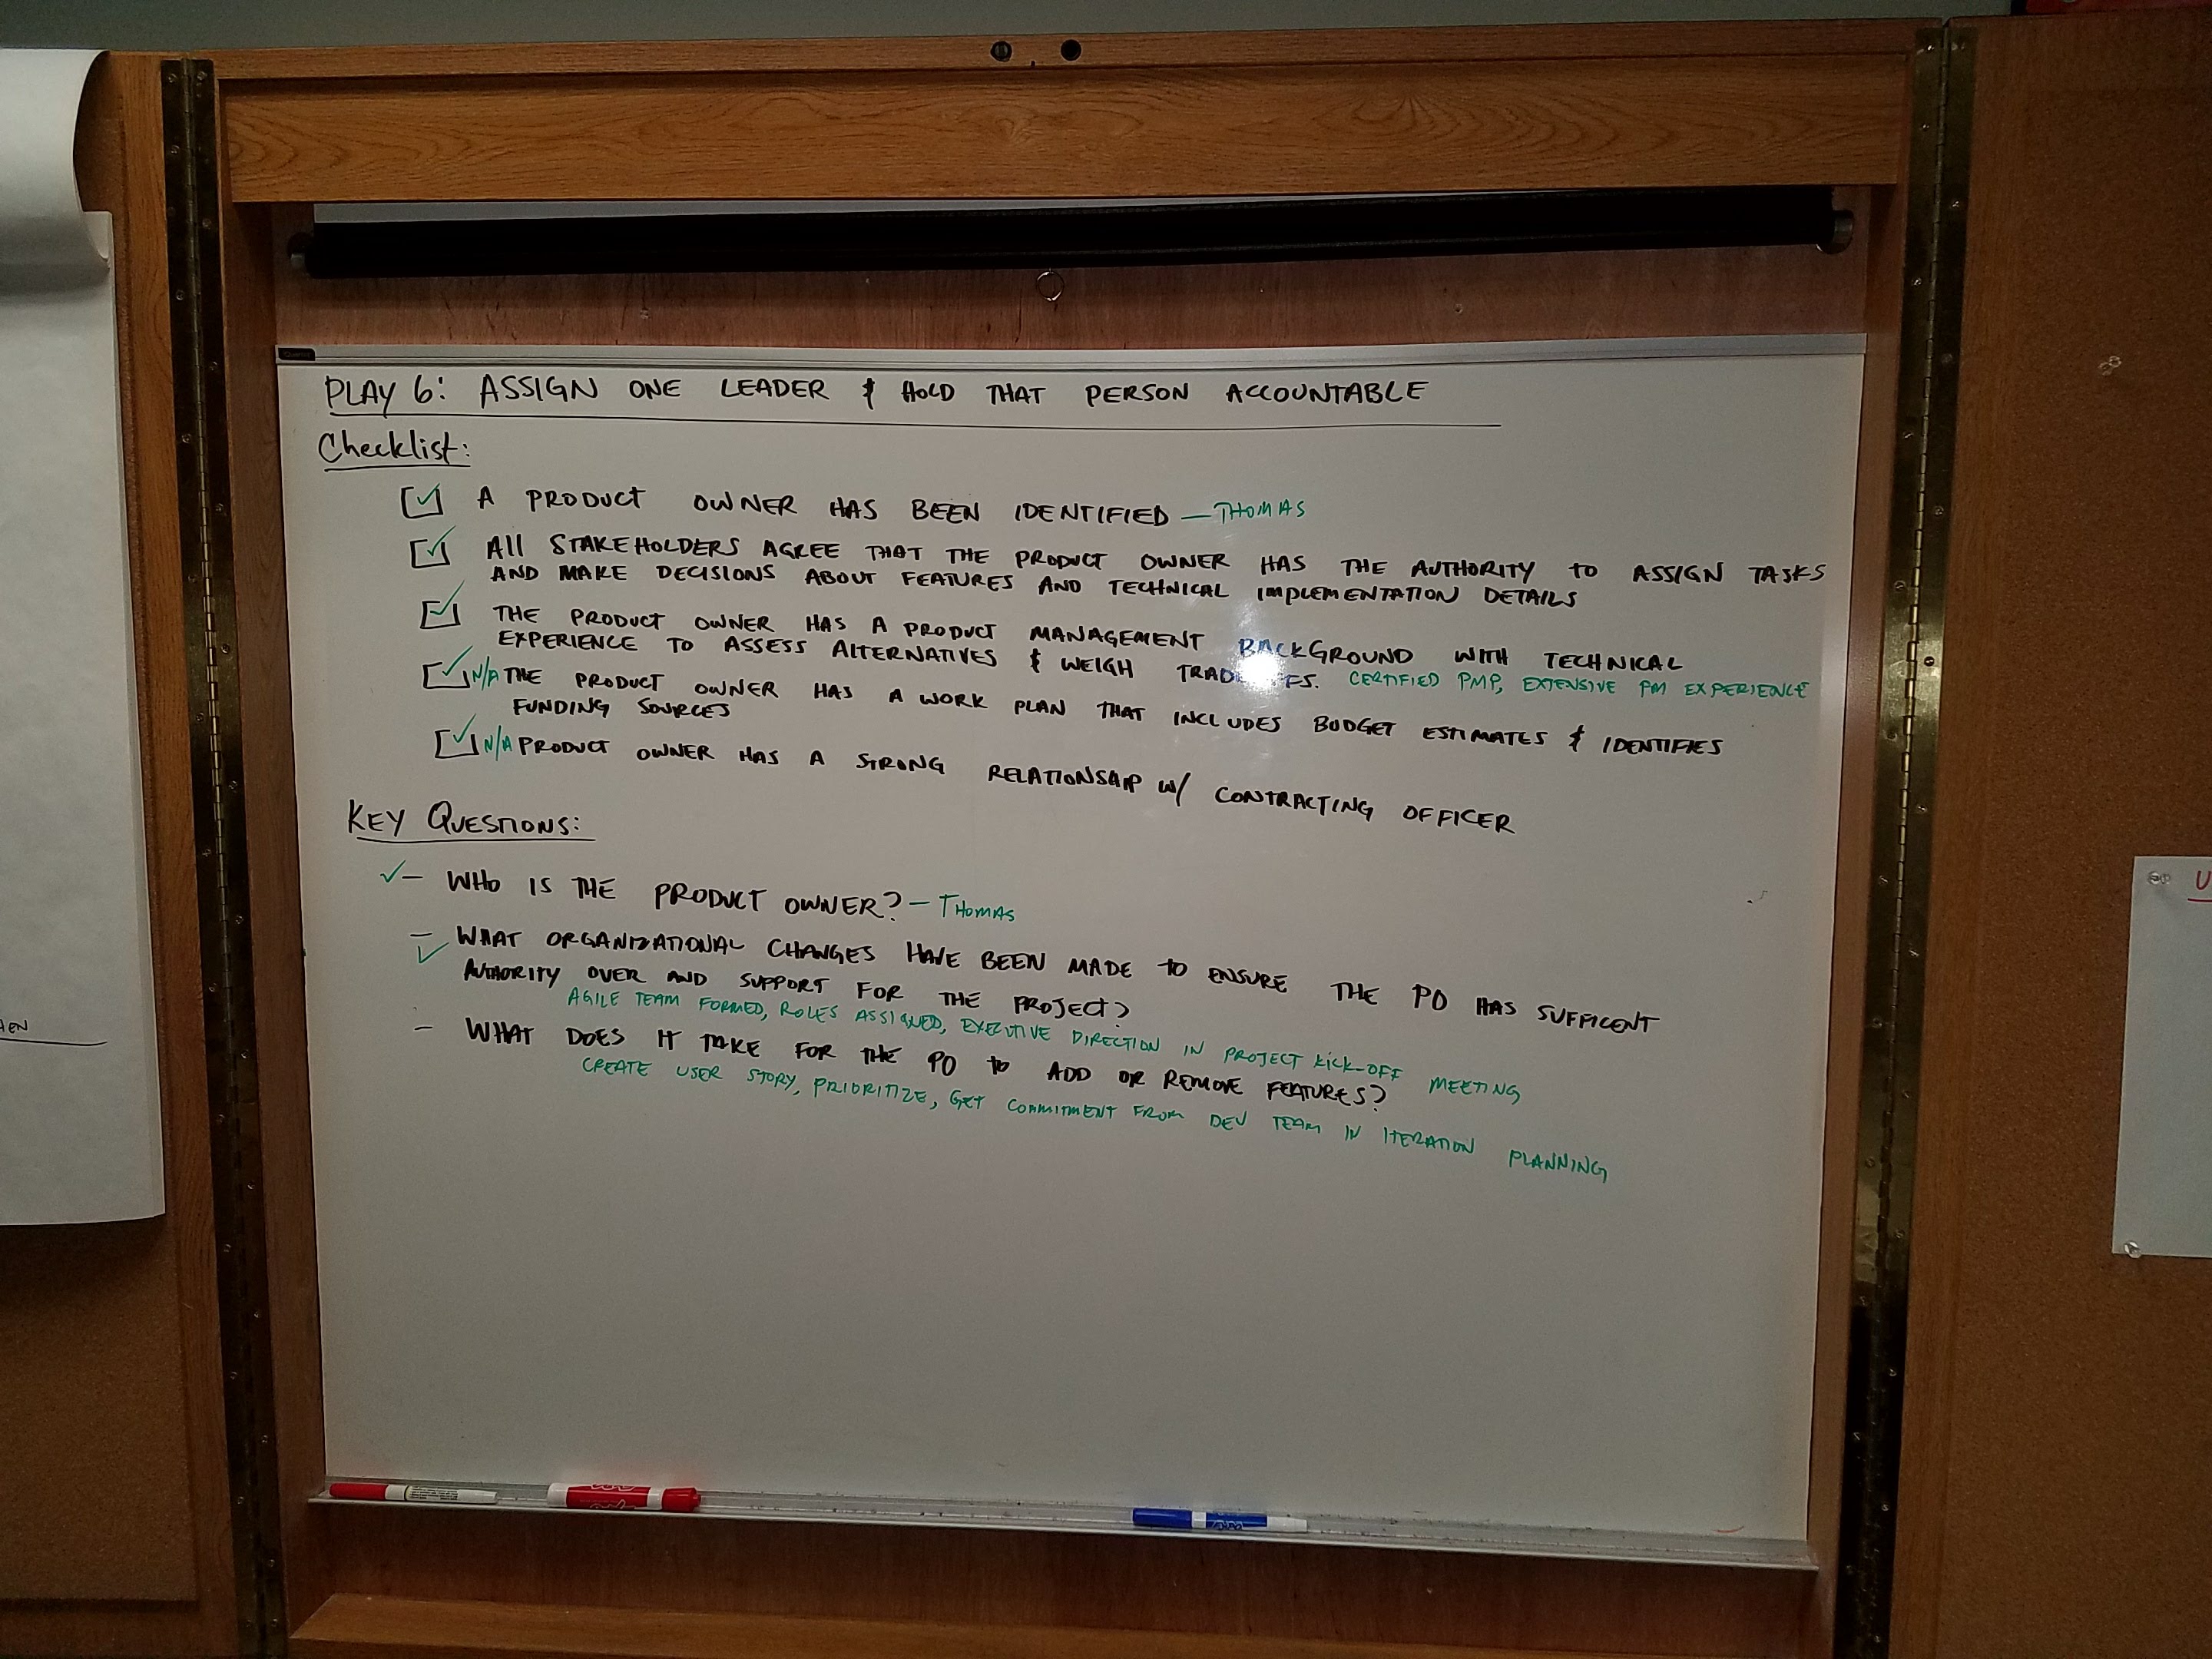 PLAY 6: ASSIGN ONE LEADER & HOLD THAT PERSON ACCOUNTABLE
Checklist:
A PRODUCT OWNER HAS BEEN IDENTIFIED — THOMAS
All STAKEHOLDERS AGREE THAT THE PRODUCT OWNER HAS THE AUTHORITY to ASSIGN TASKS
AND MAKE DECISIONS ABOUT FEATURES AND TECHNICAL IMPLEMENTATION DETAILS
THE PRODUCT OWNER HAS A PRODUCT MANAGEMENT BACKGROUND WITH TECHNICAL
EXPERIENCE TO ASSESS ALTERNATIVES & WEIGH TRADEOFFS. CERTIFIED PMP, EXTENSIVE PM EXPERIENCE
N/A THE PRODUCT OWNER HAS A WORK PLAN THAT INCLUDES BUDGET ESTIMATES & IDENTIFIES
FUNDING SOURCES
N/A PRODUCT OWNER HAS A STRONG RELATIONSHIP W/ CONTRACTING OFFICER
KEY QUESTIONS:
✓— WHO IS THE PRODUCT OWNER? — THOMAS
— WHAT ORGANIZATIONAL CHANGES HAVE BEEN MADE to ENSURE THE PO HAS SUFFICENT
✓ AUTHORITY OVER AND SUPPORT FOR THE PROJECT?
AGILE TEAM FORMED, ROLES ASSIGNED, EXECUTIVE DIRECTION IN PROJECT KICK-OFF MEETING
— WHAT DOES IT TAKE FOR THE PO to ADD OR REMOVE FEATURES?
CREATE USER STORY, PRIORITIZE, GET COMMITMENT FROM DEV TEAM IN ITERATION PLANNING